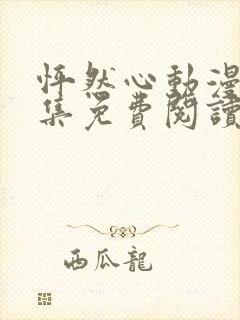 怦然心動漫
集免費閱讀
西瓜龍